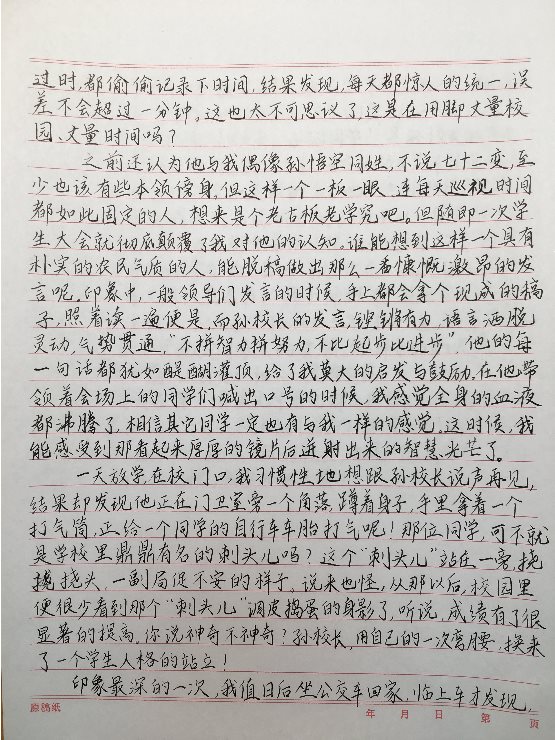 过时,都偷偷记录下时间,结果发现,每天都惊人的统一,误
差不会超过一分钟,这也太不可思议了,这是在用脚丈量校
园、丈量时间吗?
之前还认为他与我偶像孙悟空同姓,不说七十二变,至
少也该有些本领傍身,但这样一个一板一眼,连每天巡视时间
都如此固定的人,想来是个老古板老学究吧。但随即一次学
生大会就彻底颠覆了我对他的认知。谁能想到这样一个具有
朴实的农民气质的人,能脱稿做出那么一番慷慨激昂的发
言呢。印象中,一般领导们发言的时候,手上都会拿个现成的稿
子,照着读一遍便是,而孙校长的发言,铿锵有力,语言洒脱
灵动,气势贯通,“不拼智力拼努力,不比起步比进步”,他的每
一句话都犹如醍醐灌顶,给了我莫大的启发与鼓励。在他带
领着会场上的同学们喊出口号的时候,我感觉全身的血液
都沸腾了,相信其它同学一定也有与我一样的感觉,这时候,我
能感受到那看起来厚厚的镜片后迸射出来的智慧光芒了。
一天放学在校门口,我习惯性地想跟孙校长说声再见,
结果却发现他正在门卫室旁一个角落,蹲着身子,手里拿着一个
打气筒,正给一个同学的自行车车胎打气呢!那位同学,可不就
是学校里鼎鼎有名的刺头儿吗?这个“刺头儿”站在一旁,挠
挠挠头,一副局促不安的样子,说来也怪,从那以后,校园里
便很少看到那个“刺头儿”调皮捣蛋的身影了,听说,成绩有了很
显著的提高,你说神奇不神奇?孙校长,用自己的一次弯腰,换来
了一个学生人格的站立!
印象最深的一次,我值日后坐公交车回家,临上车才发现,
原稿纸 年 月 日 第 页